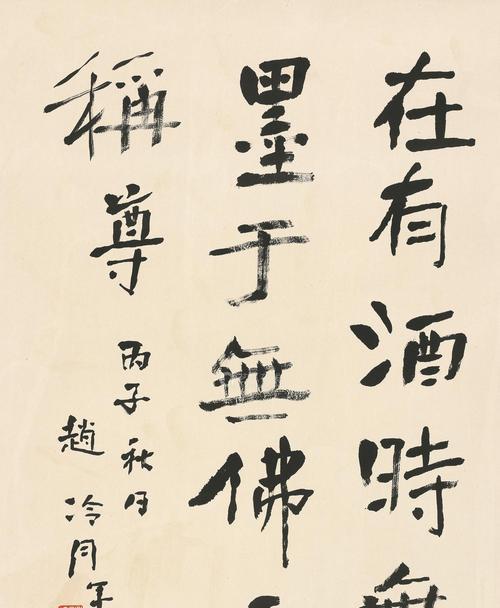 在有酒時無
墨于無佛
稱尊
丙子秋月
趙冷月